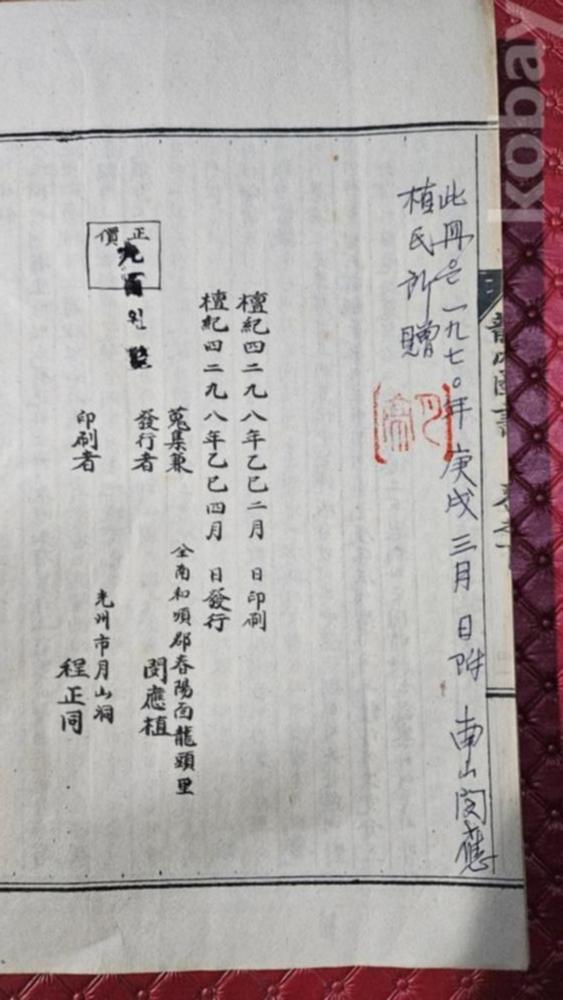 此冊은 一九七〇年 庚戌 三月 日 附 南山 閔應
植氏 所贈
檀紀四二九八年乙巳二月 日印刷
檀紀四二九八年乙巳四月 日發行
蒐集兼
全南和順郡春陽面龍頭里
發行者
閔應植
光州市月山洞
印刷者
程正同
正價
九百원
kobay